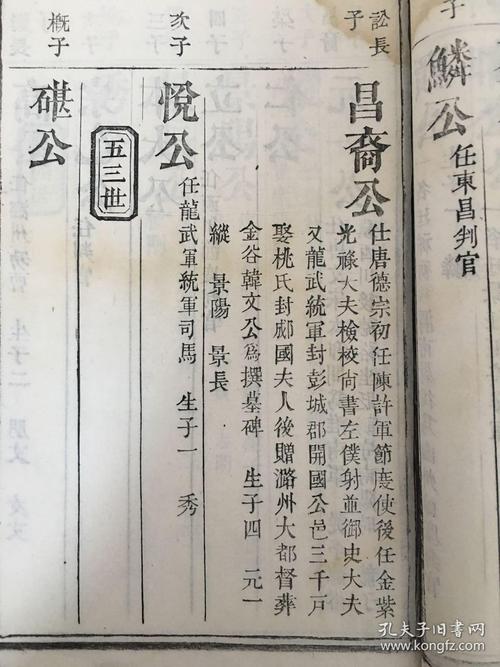 子
鱗公
任東昌判官
訟長子
昌裔公
仕唐德宗初任陳許軍節度使後任金紫
光祿大夫檢校尚書左僕射並御史大夫
又龍武統軍封彭城郡開國公邑三千戶
娶桃氏封國夫人後贈潞州大都督葬
金谷韓文公爲撰墓碑 生子四 元一
縱 景陽 景長
次子
悅公
任龍武軍統軍司馬 生子一 秀
五三世
概子
碪公
孔夫子旧书网
www.kongfz.com